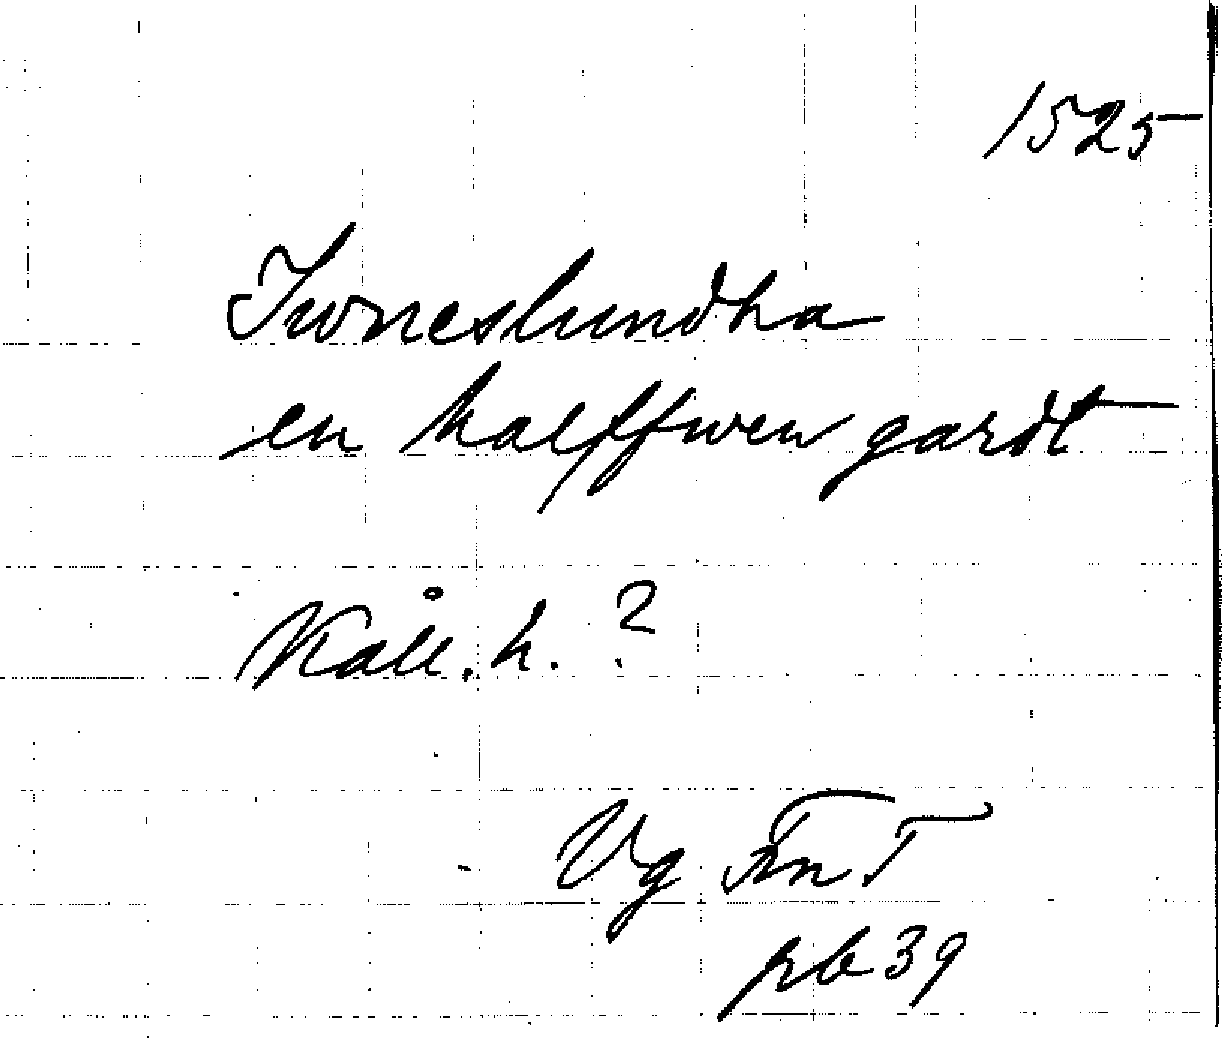 1525
Iwneslundha
en halffwen gardt
Kåll. h. ?
Vg FnT
rb 39